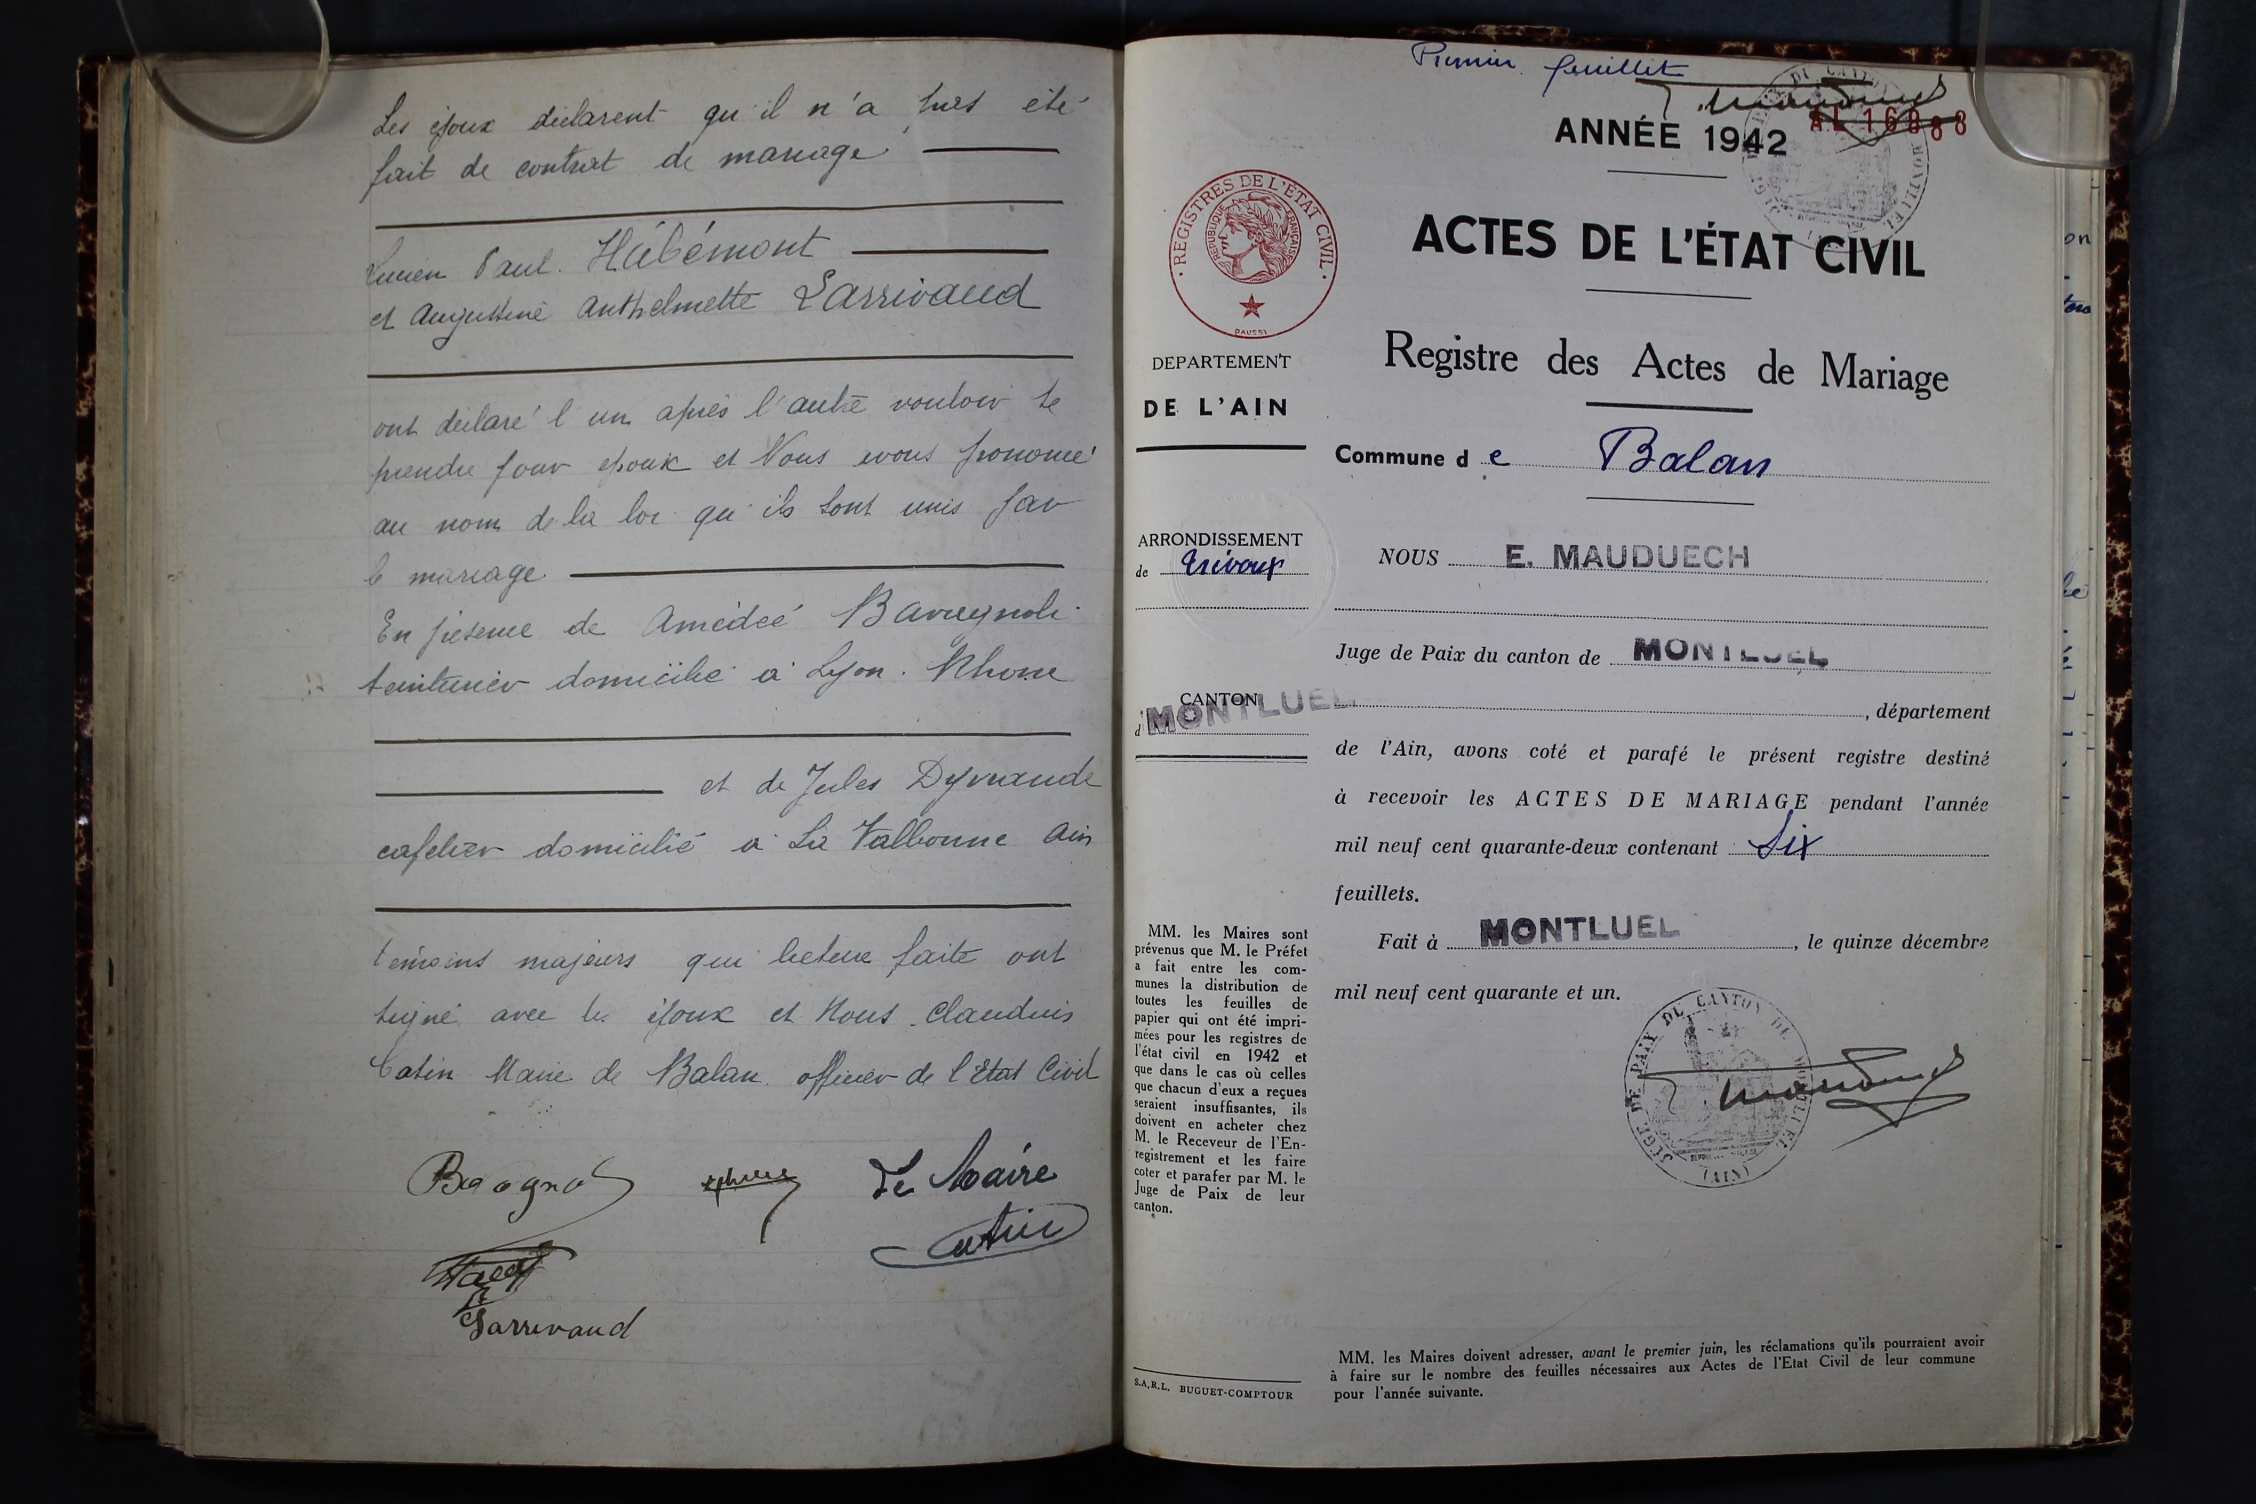 Les époux déclarent qu'il n'a pas été
fait de contrat de mariage
Lucien Paul Habémont
et Augustine Anthelmette Larrivaud
ont déclaré l'un après l'autre vouloir se
prendre pour époux et Nous avons prononcé
au nom de la loi qu'ils sont unis par
le mariage
En présence de Amédée
teinturier domicilié à Lyon. Rhone
et de Jules
cafetier domicilié à La Valbonne Ain
témoins majeurs qui lecture faite ont
signé avec les époux et Nous Claudius
Catin Maire de Balan officier de l'Etat Civil
Le Maire
Catin
Larrivaud
Premier feuillet
AL 16888
ANNÉE 1942
ACTES DE L'ÉTAT CIVIL
Registre des Actes de Mariage
REGISTRES DE L'ETAT CIVIL
REPUBLIQUE FRANÇAISE
DAUSSI
DEPARTEMENT
DE L'AIN
ARRONDISSEMENT
de Trévoux
CANTON
d MONTLUEL
Commune de Balan
NOUS E. MAUDUECH
Juge de Paix du canton de MONTLUEL
, département
de l'Ain, avons coté et parafé le présent registre destiné
à recevoir les ACTES DE MARIAGE pendant l'année
mil neuf cent quarante-deux contenant Six
feuillets.
Fait à MONTLUEL, le quinze décembre
mil neuf cent quarante et un.
JUGE DE PAIX DU CANTON DE MONTLUEL
(AIN)
MM. les Maires sont
prévenus que M. le Préfet
a fait entre les com-
munes la distribution de
toutes les feuilles de
papier qui ont été impri-
mées pour les registres de
l'état civil en 1942 et
que dans le cas où celles
que chacun d'eux a reçues
seraient insuffisantes, ils
doivent en acheter chez
M. le Receveur de l'En-
registrement et les faire
coter et parafer par M. le
Juge de Paix de leur
canton.
S.A.R.L. BUGUET-COMPTOUR
MM. les Maires doivent adresser, avant le premier juin, les réclamations qu'ils pourraient avoir
à faire sur le nombre des feuilles nécessaires aux Actes de l'Etat Civil de leur commune
pour l'année suivante.